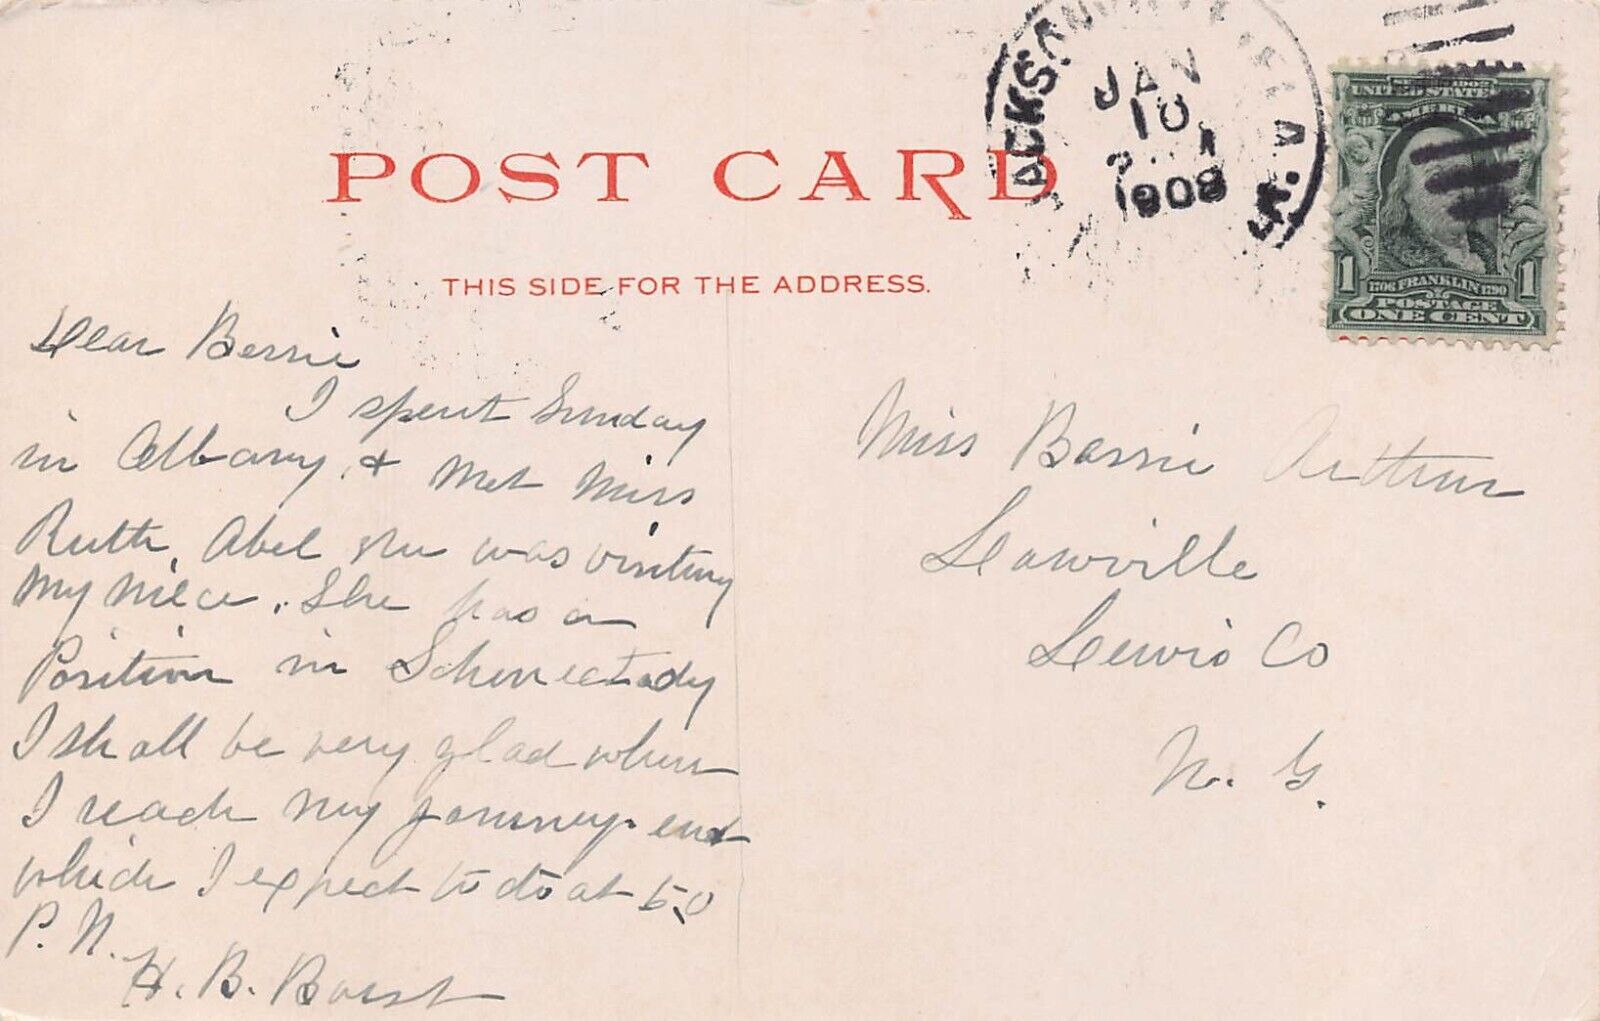 POST CARD
THIS SIDE FOR THE ADDRESS.
JACKSONVILLE, FLA.
JAN
10
1908
SERIES 1902
UNITED STATES OF AMERICA
1706 FRANKLIN 1790
1 POSTAGE 1
ONE CENT
Dear Bessie
I spent Sunday
in Albany, & met Miss
Ruth Abel she was visiting
my niece. She has a
Position in Schenectady
I shall be very glad when
I reach my journeys end
which I expect to do at 5.0
P. M.
H. B. Borst
Miss Bessie Arthur
Lowville
Lewis Co
N. Y.